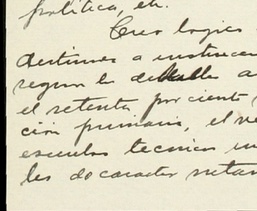 política, etc.
Creo logico
destinar a instruccion
segun le detalle a
el setenta por ciento
ción primaria, el ve
escuelas tecnicas in
les de caracter netam